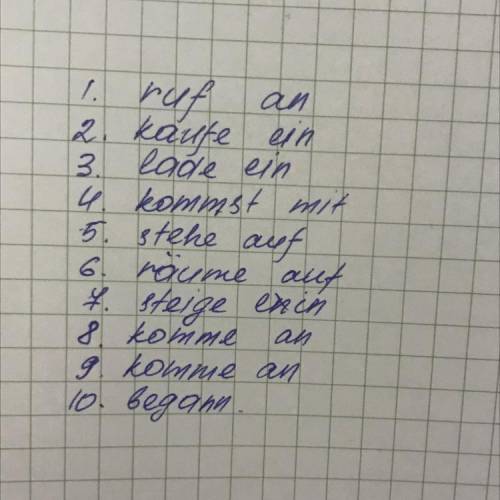 1. ruf an
2. kaufe ein
3. lade ein
4. kommst mit
5. stehe auf
6. räume auf
7. steige ein
8. komme an
9. komme an
10. begann.